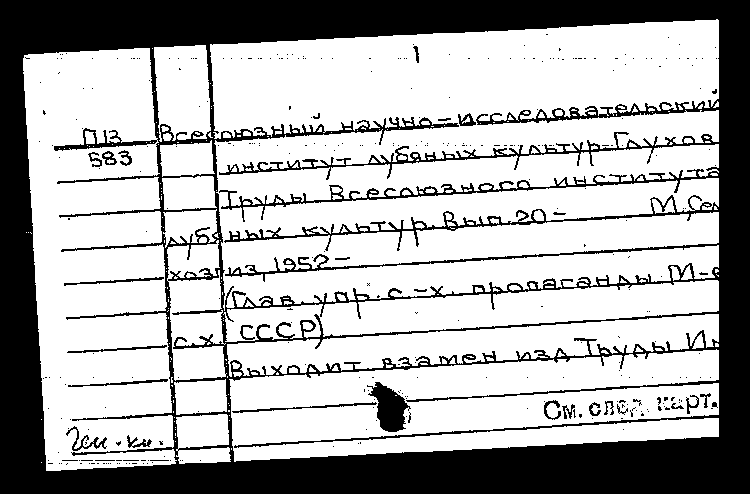 1
П13 Всесоюзный научно-исследовательский
583 институт лубяных культур. Глухов
Труды Всесоюзного института
лубяных культур. Вып. 20- М., Сел
хозгиз, 1952-
(Глав. упр. с.-х. пропаганды М-
с.х. СССР)
Выходит взамен изд Труды
См. след. карт.
Ген. кл.